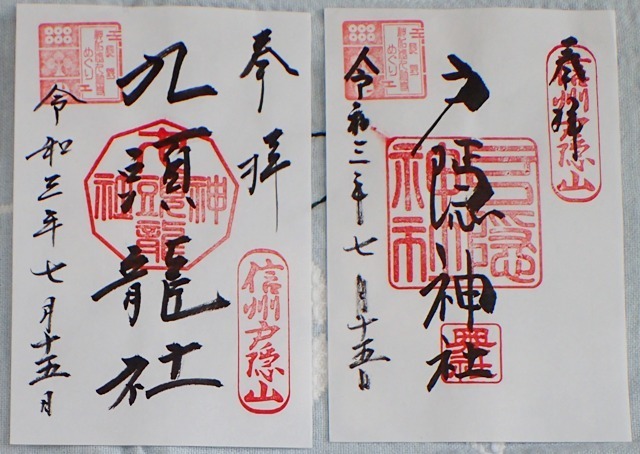 奉拝
信州戸隠山
九頭龍社
令和三年七月十五日
奉拝
信州戸隠山
戸隠神社
戸隠神社
令和三年七月十五日